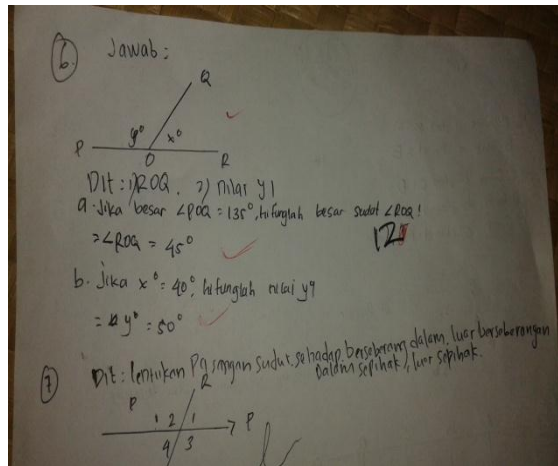 6 Jawab:
Q
y° x°
P O R
Dit: 1) ROQ. 2) nilai y!
a. Jika besar ∠POQ = 135°, hitunglah besar sudut ∠ROQ!
= ∠ROQ = 45°
12
b. Jika x° = 40°, hitunglah nilai y°
= y° = 50°
7 Dit: tentukan Pasangan sudut. sehadap, berseberangan dalam, luar berseberangan
Dalam sepihak), luar sepihak.
R
P 1 2 1 P
4 3